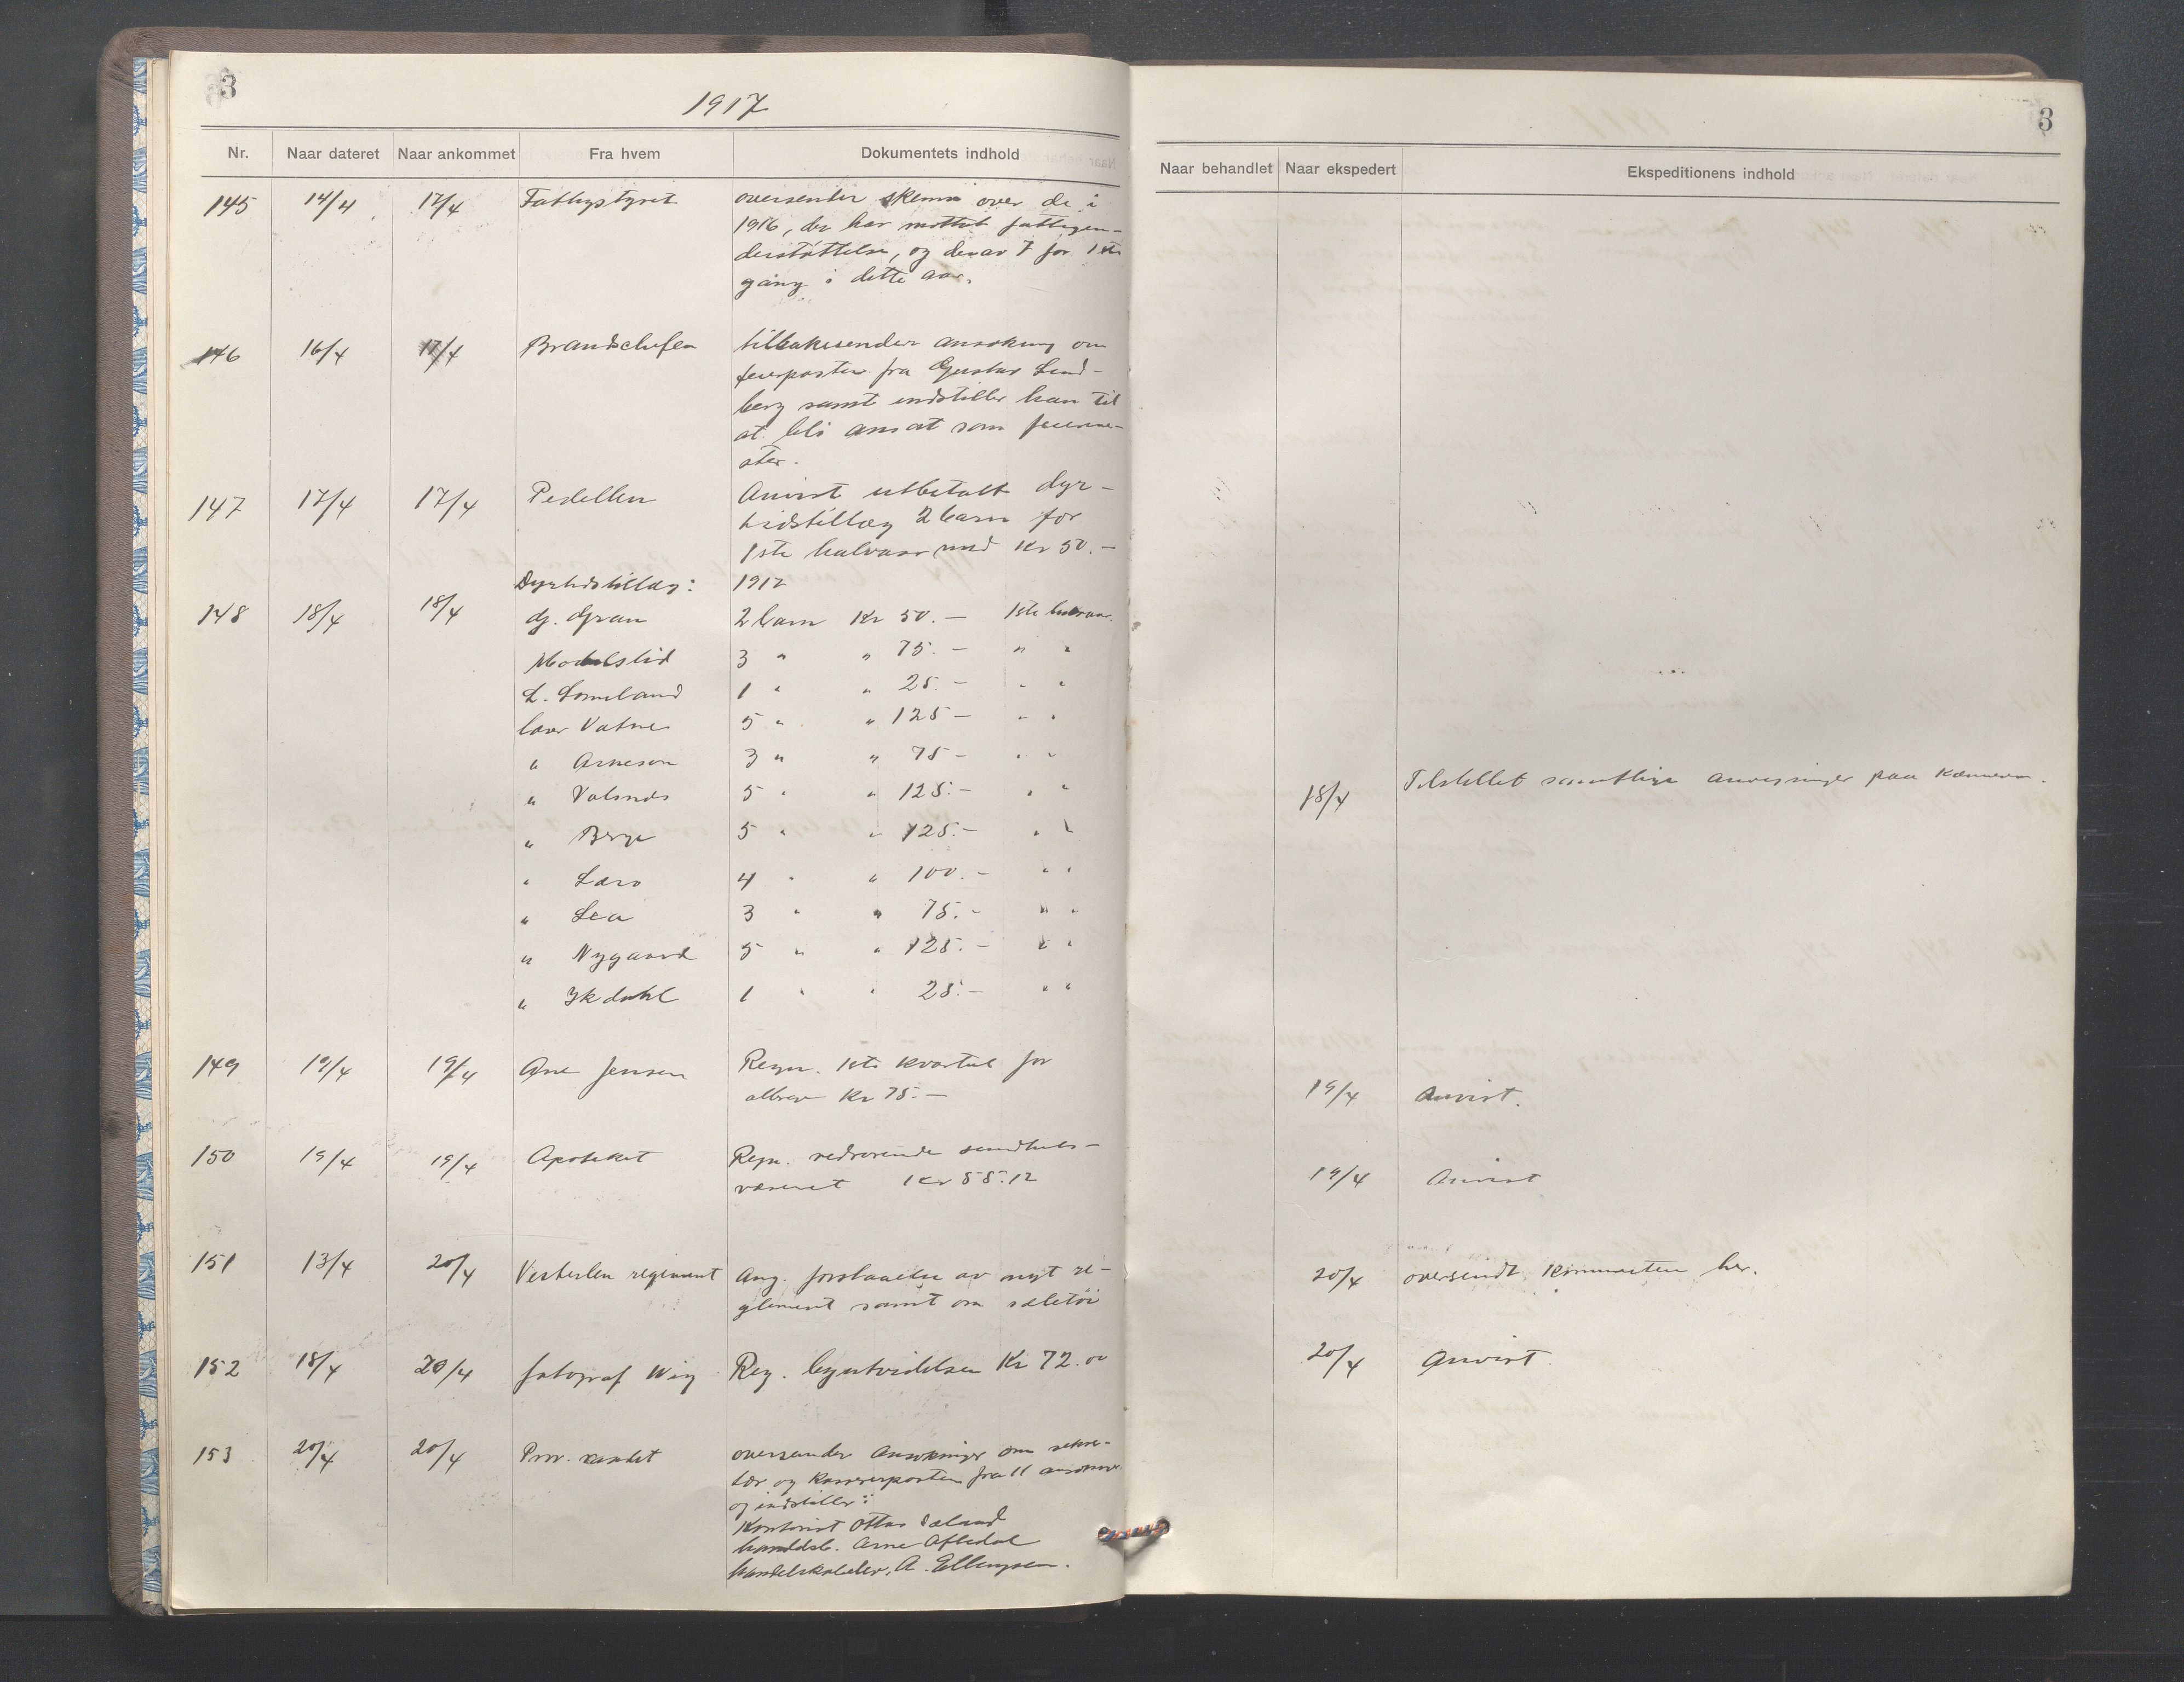 3
1917
Nr. Naar dateret Naar ankommet Fra hvem Dokumentets indhold
145 14/4 17/4 Fattigstyret oversender skema over de i
1916, der har mottat fattigun-
derstøttelse, og derav 7 for 1ste
gang i dette aar.
146 16/4 17/4 Brandchefen tilbakesender ansøkning om
feierposten fra Gustav Lind-
berg samt indstiller han til
at bli ansat som feierme-
ster.
147 17/4 17/4 Pedellen Anvist utbetalt dyr-
tidstillæg 2 barn for
1ste halvaar med Kr 50.-
Dyrtidstillæg: 1917
148 18/4 18/4 Gran 2 barn Kr 50.- 1ste halvaar.
3 " " 75.- " "
L. 1 " " 25.- " "
lærer Vatne 5 " " 125- " "
" Arneson 3 " " 75- " "
" 5 " " 125.- " "
" Berge 5 " " 125.- " "
" 4 " " 100.- " "
" Lea 3 " " 75.- " "
" Nygaard 5 " " 125.- " "
" Ikdahl 1 " " 25.- " "
149 19/4 19/4 Jensen Regn. 1ste kvartal for
Kr 75.-
150 19/4 19/4 Apoteket Regn. vedrørende sundheds-
væsenet Kr 55.12
151 13/4 20/4 Vesterlen regiment Ang. av nyt re-
glement samt om seletøi
152 18/4 20/4 fotograf Wiig Reg. byutvidelsen Kr 72.00
153 20/4 20/4 Prov. raadet oversender ansøkninger om sekre-
tær og kasserposten fra 11 ansøkere
og indstiller:
Kontorist Ottar
handelsb. Arne Aftedal
A. Ellingsen.
3
Naar behandlet Naar ekspedert Ekspeditionens indhold
18/4 Tilstillet samtlige anvisninger paa kæmneren.
19/4 Anvist.
19/4 Anvist
20/4 oversendt her.
20/4 Anvist.